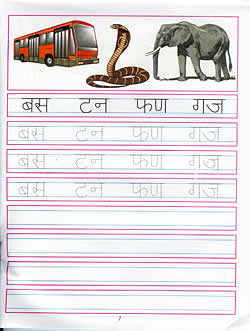 बस टन फण गज
बस टन फण गज
बस टन फण गज
बस टन फण गज
7